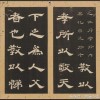 見之也教以
孝所以敬天
下之為人父
者也教以悌